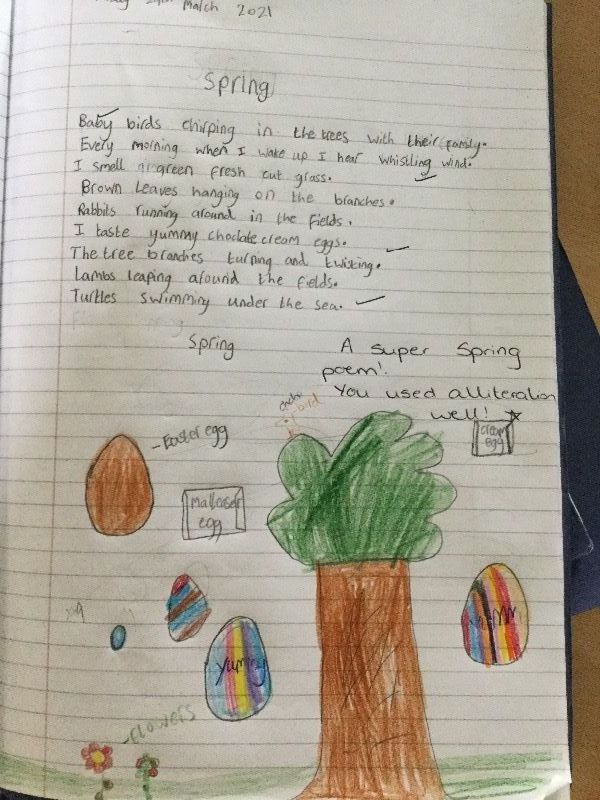 March 2021
Spring
Baby birds chirping in the trees with their family.
Every morning when I wake up I hear whistling wind.
I smell green fresh cut grass.
Brown leaves hanging on the branches.
Rabbits running around in the fields.
I taste yummy choclate cream eggs.
The tree branches turning and twisting.
Lambs leaping around the fields.
Turtles swimming under the sea.
Spring
A super Spring
poem!
You used alliteration
well!
bird
-Easter egg
cream
egg
malteaser
egg
yummy
-flowers